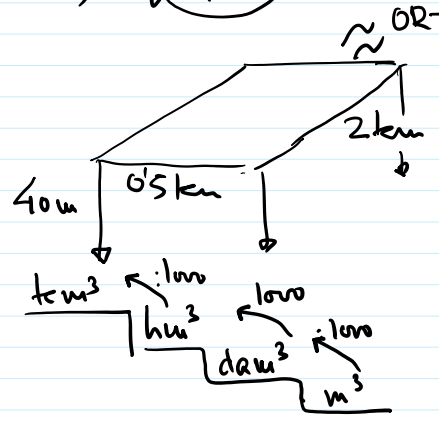 OR-
2 km
0'5 km
40m
km³ :1000
hm³ 1000
dam³ :1000
m³